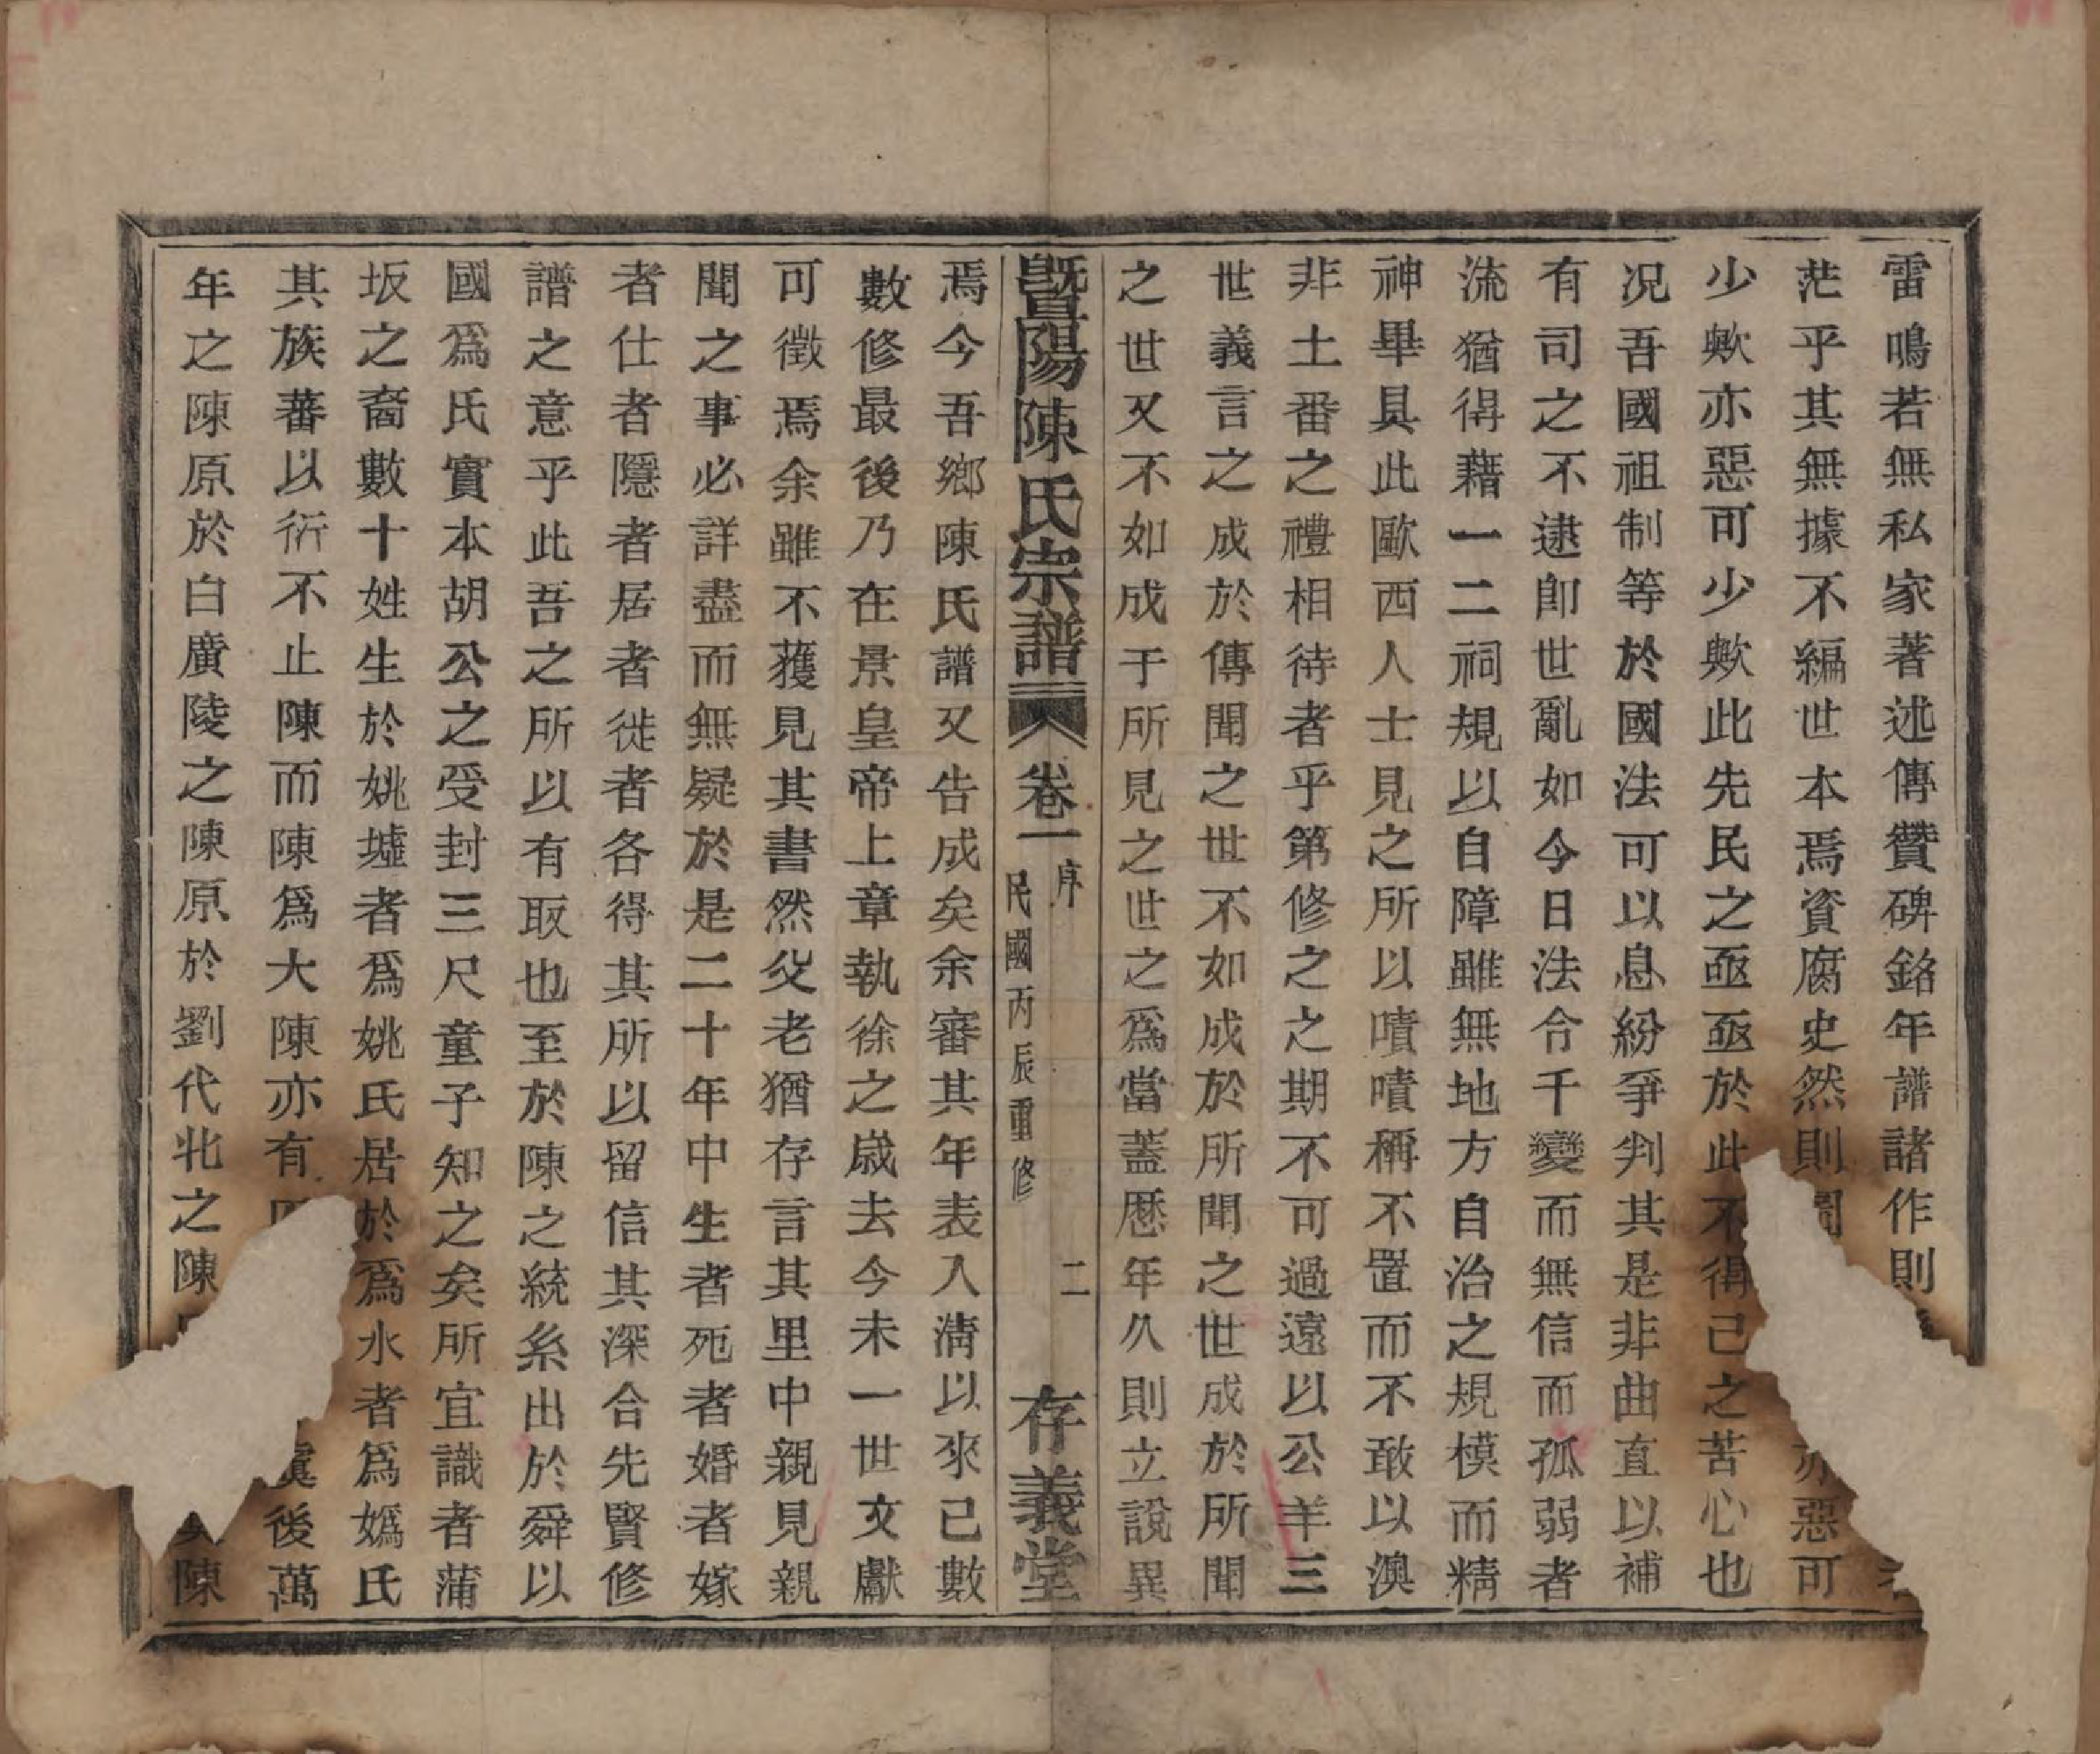 雷鳴若無私家著述傳贊碑銘年譜諸作則
茫乎其無據不編世本焉資腐史然則
亦惡可
少歟亦惡可少歟此先民之亟亟於此不得已之苦心也
况吾國祖制等於國法可以息紛爭判其是非曲直以補
有司之不逮卽世亂如今日法令千變而無信而孤弱者
流猶得藉一二祠規以自障雖無地方自治之規模而精
神畢具此歐西人士見之所以嘖嘖稱不置而不敢以澳
非土番之禮相待者乎第修之之期不可過遠以公羊三
世義言之成於傳聞之世不如成於所聞之世成於所聞
之世又不如成于所見之世之爲當蓋歷年久則立說異
暨陽陳氏宗譜
卷一
序
民國丙辰重修
二
存義堂
焉今吾鄉陳氏譜又告成矣余審其年表入淸以來已數
數修最後乃在景皇帝上章執徐之歲去今未一世文獻
可徵焉余雖不獲見其書然父老猶存言其里中親見親
聞之事必詳盡而無疑於是二十年中生者死者婚者嫁
者仕者隱者居者徙者各得其所以留信其深合先賢修
譜之意乎此吾之所以有取也至於陳之統系出於舜以
國爲氏實本胡公之受封三尺童子知之矣所宜識者蒲
坂之裔數十姓生於姚墟者爲姚氏居於爲水者爲嬀氏
其族蕃以衍不止陳而陳爲大陳亦有
虞後萬
年之陳原於白廣陵之陳原於劉代北之陳
陳